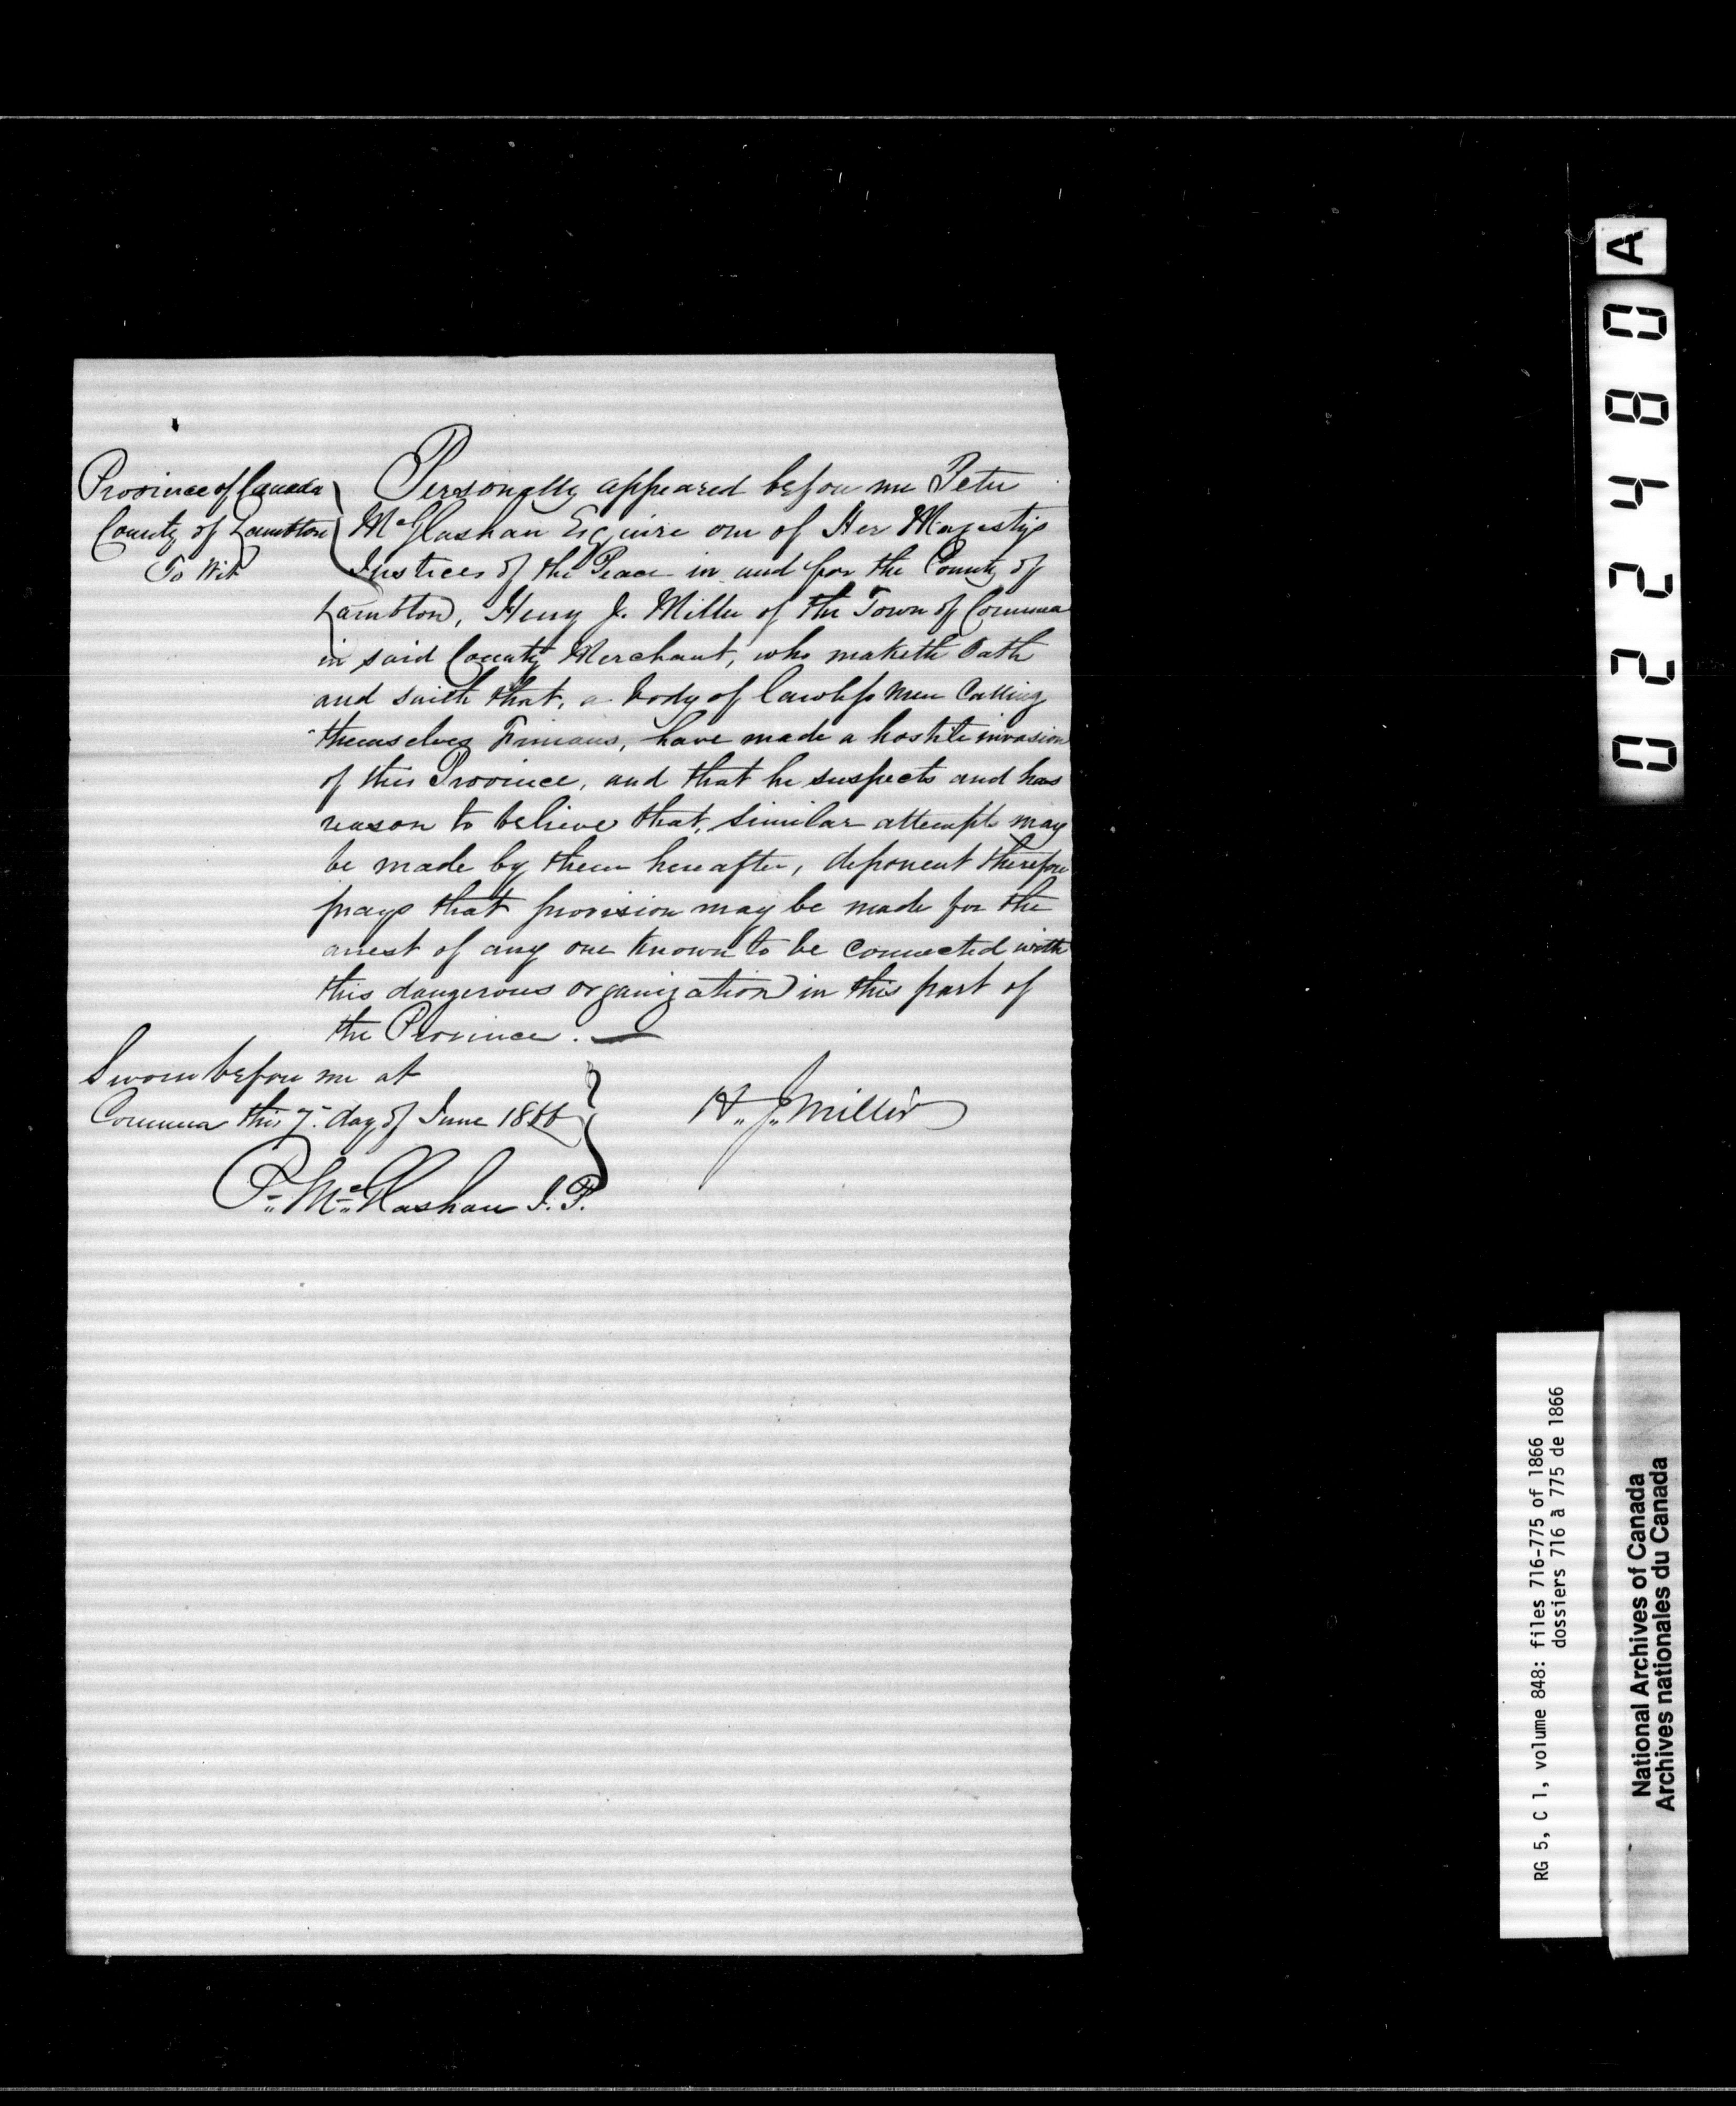 Province of Canada
County of Lambton
To Wit
Personally appeared before me Peter
McGlashan Esquire one of Her Majestys
Justices of the Peace in and for the County of
Lambton, Henry J. Miller of the Town of Corunna
in said County Merchant, who maketh Oath
and saith that, a body of lawless men Calling
themselves Finians, have made a hostile invasion
of this Province, and that he suspects and has
reason to believe that, similar attempts may
be made by them hereafter, deponent therefore
prays that provision may be made for the
arrest of any one known to be connected with
this dangerous organization in this part of
the Province. —
Sworn before me at
Corunna this 7. day of June 1866
H. J. Miller
P. McGlashan J.P.
02480 A
RG 5, C 1, volume 848: files 716-775 of 1866
dossiers 716 à 775 de 1866
National Archives of Canada
Archives nationales du Canada